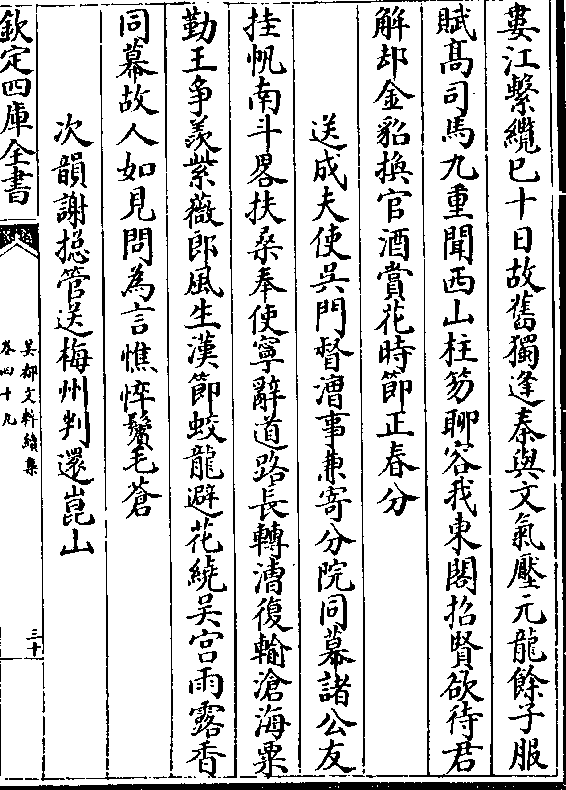 婁江繫纜已十日故舊獨逢秦與文氣壓元龍餘子服
賦髙司馬九重聞西山柱笏聊容我東閣招賢欲待君
解却金貂換官酒賞花時節正春分
送成夫使吳門督漕事兼寄分院同幕諸公友
挂帆南斗畧扶桑奉使寧辭道路長轉漕復輸滄海粟
勤王争羨紫薇郎風生漢節蛟龍避花繞吳宫雨露香
同幕故人如見問為言憔悴鬢毛蒼
次韻謝摠管送梅州判還崑山
欽定四庫全書
吴都文粹續集
卷四十九
三十